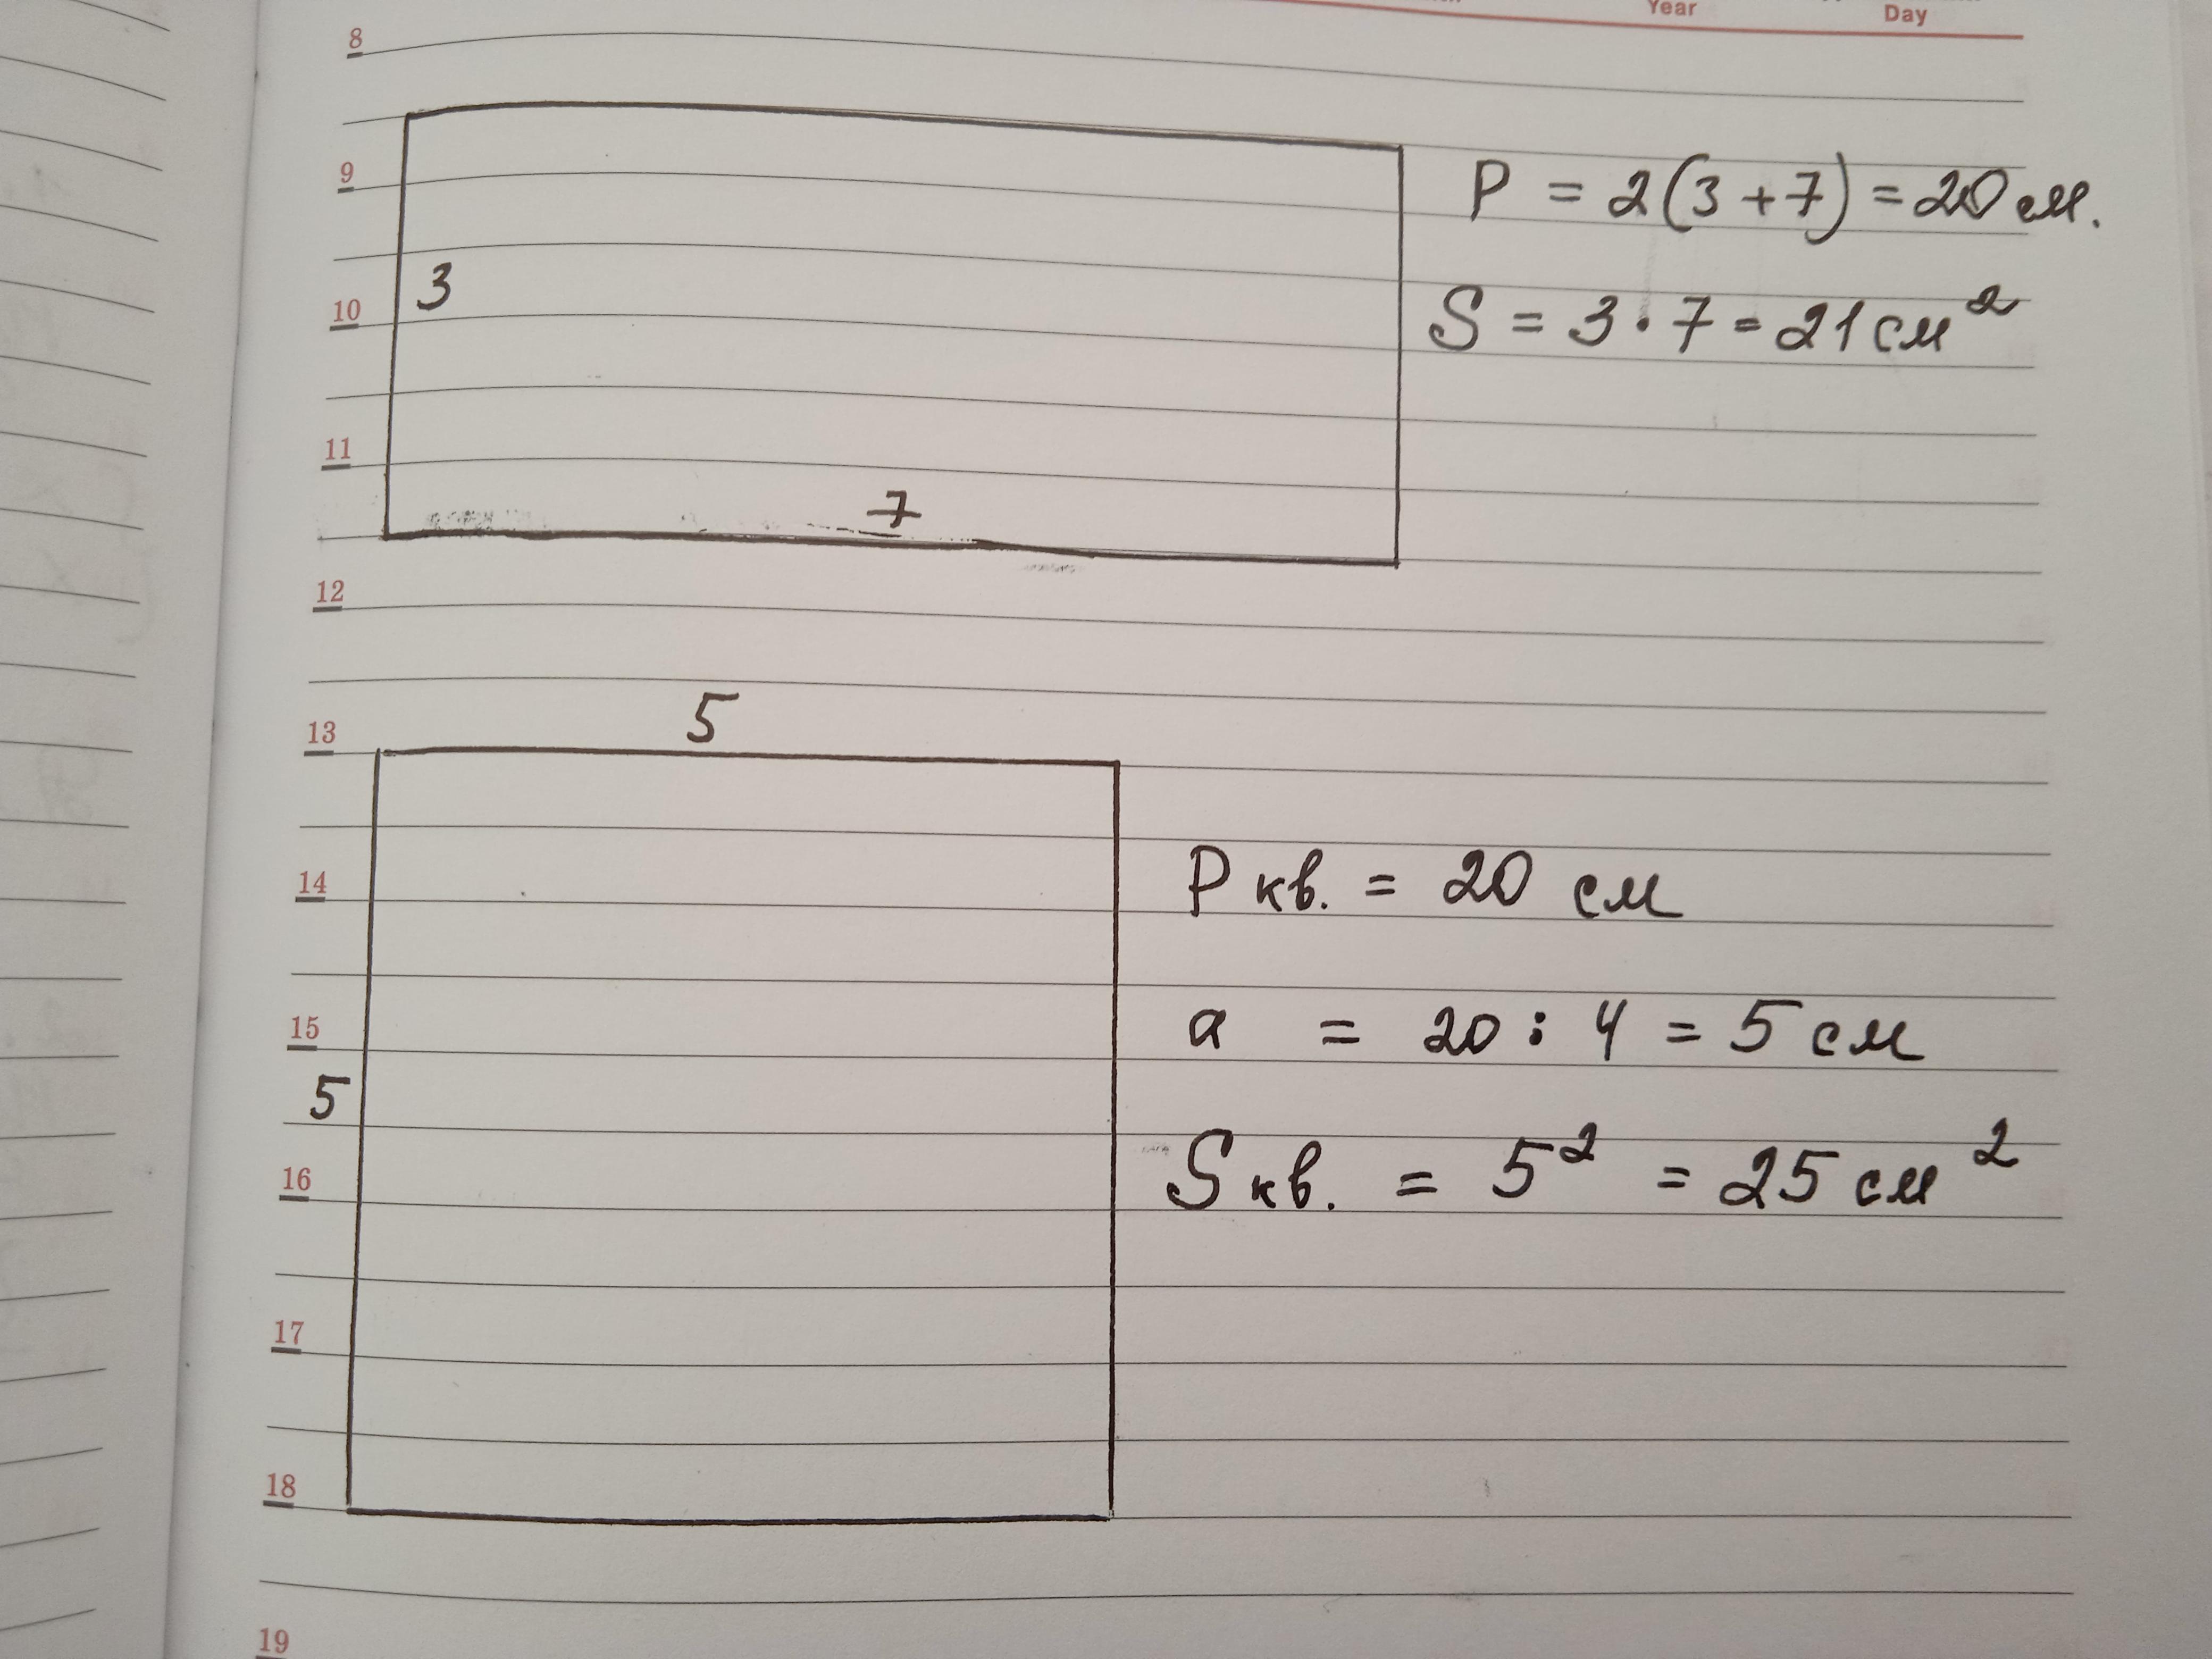 Year Day
8
9
P = 2(3+7) = 20 см.
3
10
S = 3·7 = 21 см²
11
7
12
5
13
14
P кв. = 20 см
15
a = 20 : 4 = 5 см
5
16
S кв. = 5² = 25 см²
17
18
19